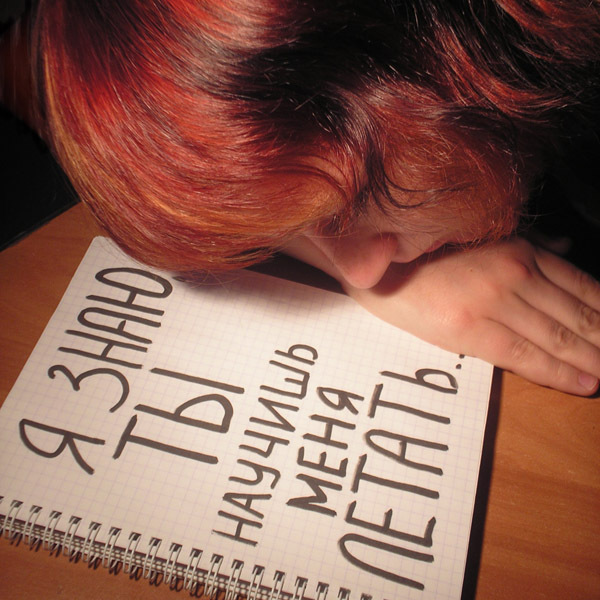 Я ЗНАЮ
ТЫ
НАУЧИШЬ
МЕНЯ
ЛЕТАТЬ...